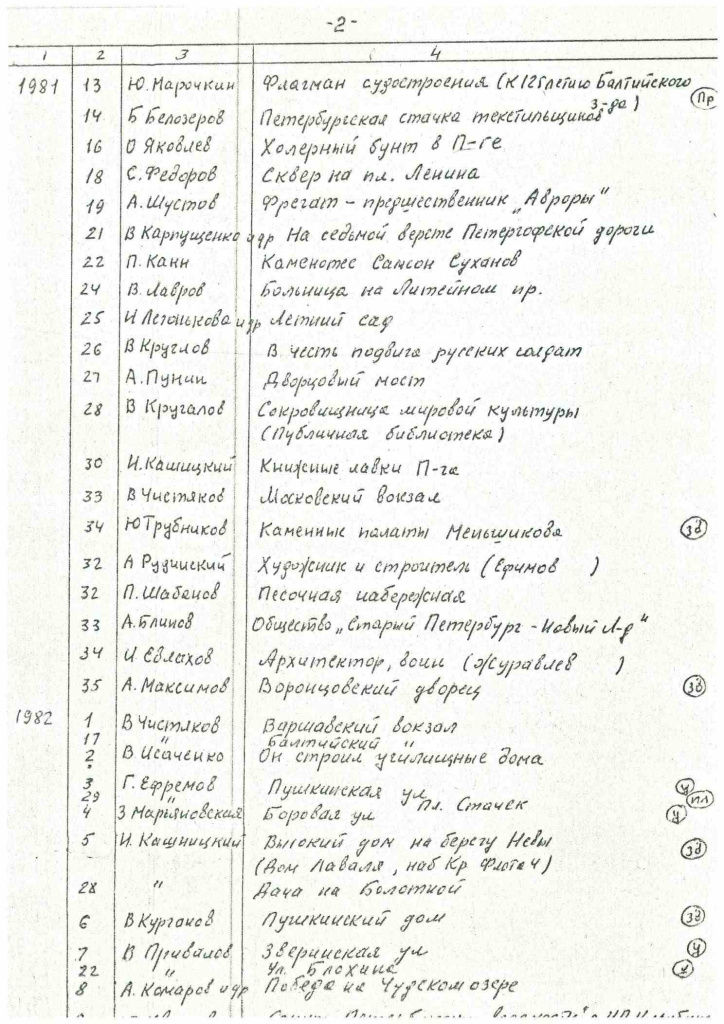 -2-
1 2 3 4
1981 13 Ю.Марочкин Флагман судостроения (К 125летию Балтийского
з-да) Пр
14 Б Белозеров Петербургская стачка текстильщиков
16 О Яковлев Холерный бунт в П-ге
18 С.Федоров Сквер на пл. Ленина
19 А.Шустов Фрегат – предшественник „Авроры"
21 В Карпущенко и др На седьмой версте Петергофской дороги
22 П.Канн Каменотес Самсон Суханов
24 В.Лавров Больница на Литейном пр.
25 И Легонькова и др Летний сад
26 В Круглов В честь подвига русских солдат
27 А.Пунин Дворцовый мост
28 В Кругалов Сокровищница мировой культуры
(Публичная библиотека)
30 И.Кашицкий Книжные лавки П-га
33 В Чистяков Московский вокзал
34 Ю Трубников Каменные палаты Меньшикова зд
32 А Рудинский Художник и строитель (Ефимов )
32 П.Шабанов Песочная набережная
33 А.Блинов Общество „Старый Петербург – Новый Л-д"
34 И Евлахов Архитектор, воин (Журавлев )
35 А.Максимов Воронцовский дворец зд
1982 1 В Чистяков Варшавский вокзал
17 " Балтийский "
2 В Исаченко Он строил училищные дома
3 Г.Ефремов Пушкинская ул у
29 " пл. Стачек пл
4 З Марьяновская Боровая ул у
5 И.Кашницкий Высокий дом на берегу Невы зд
(Дом Лаваля, наб Кр Флота 4)
28 " Дача на Болотной
6 В Курганов Пушкинский дом зд
7 В Привалов Зверинская ул у
22 " ул. Блохина у
8 А.Комаров и др Победа на Чудском озере